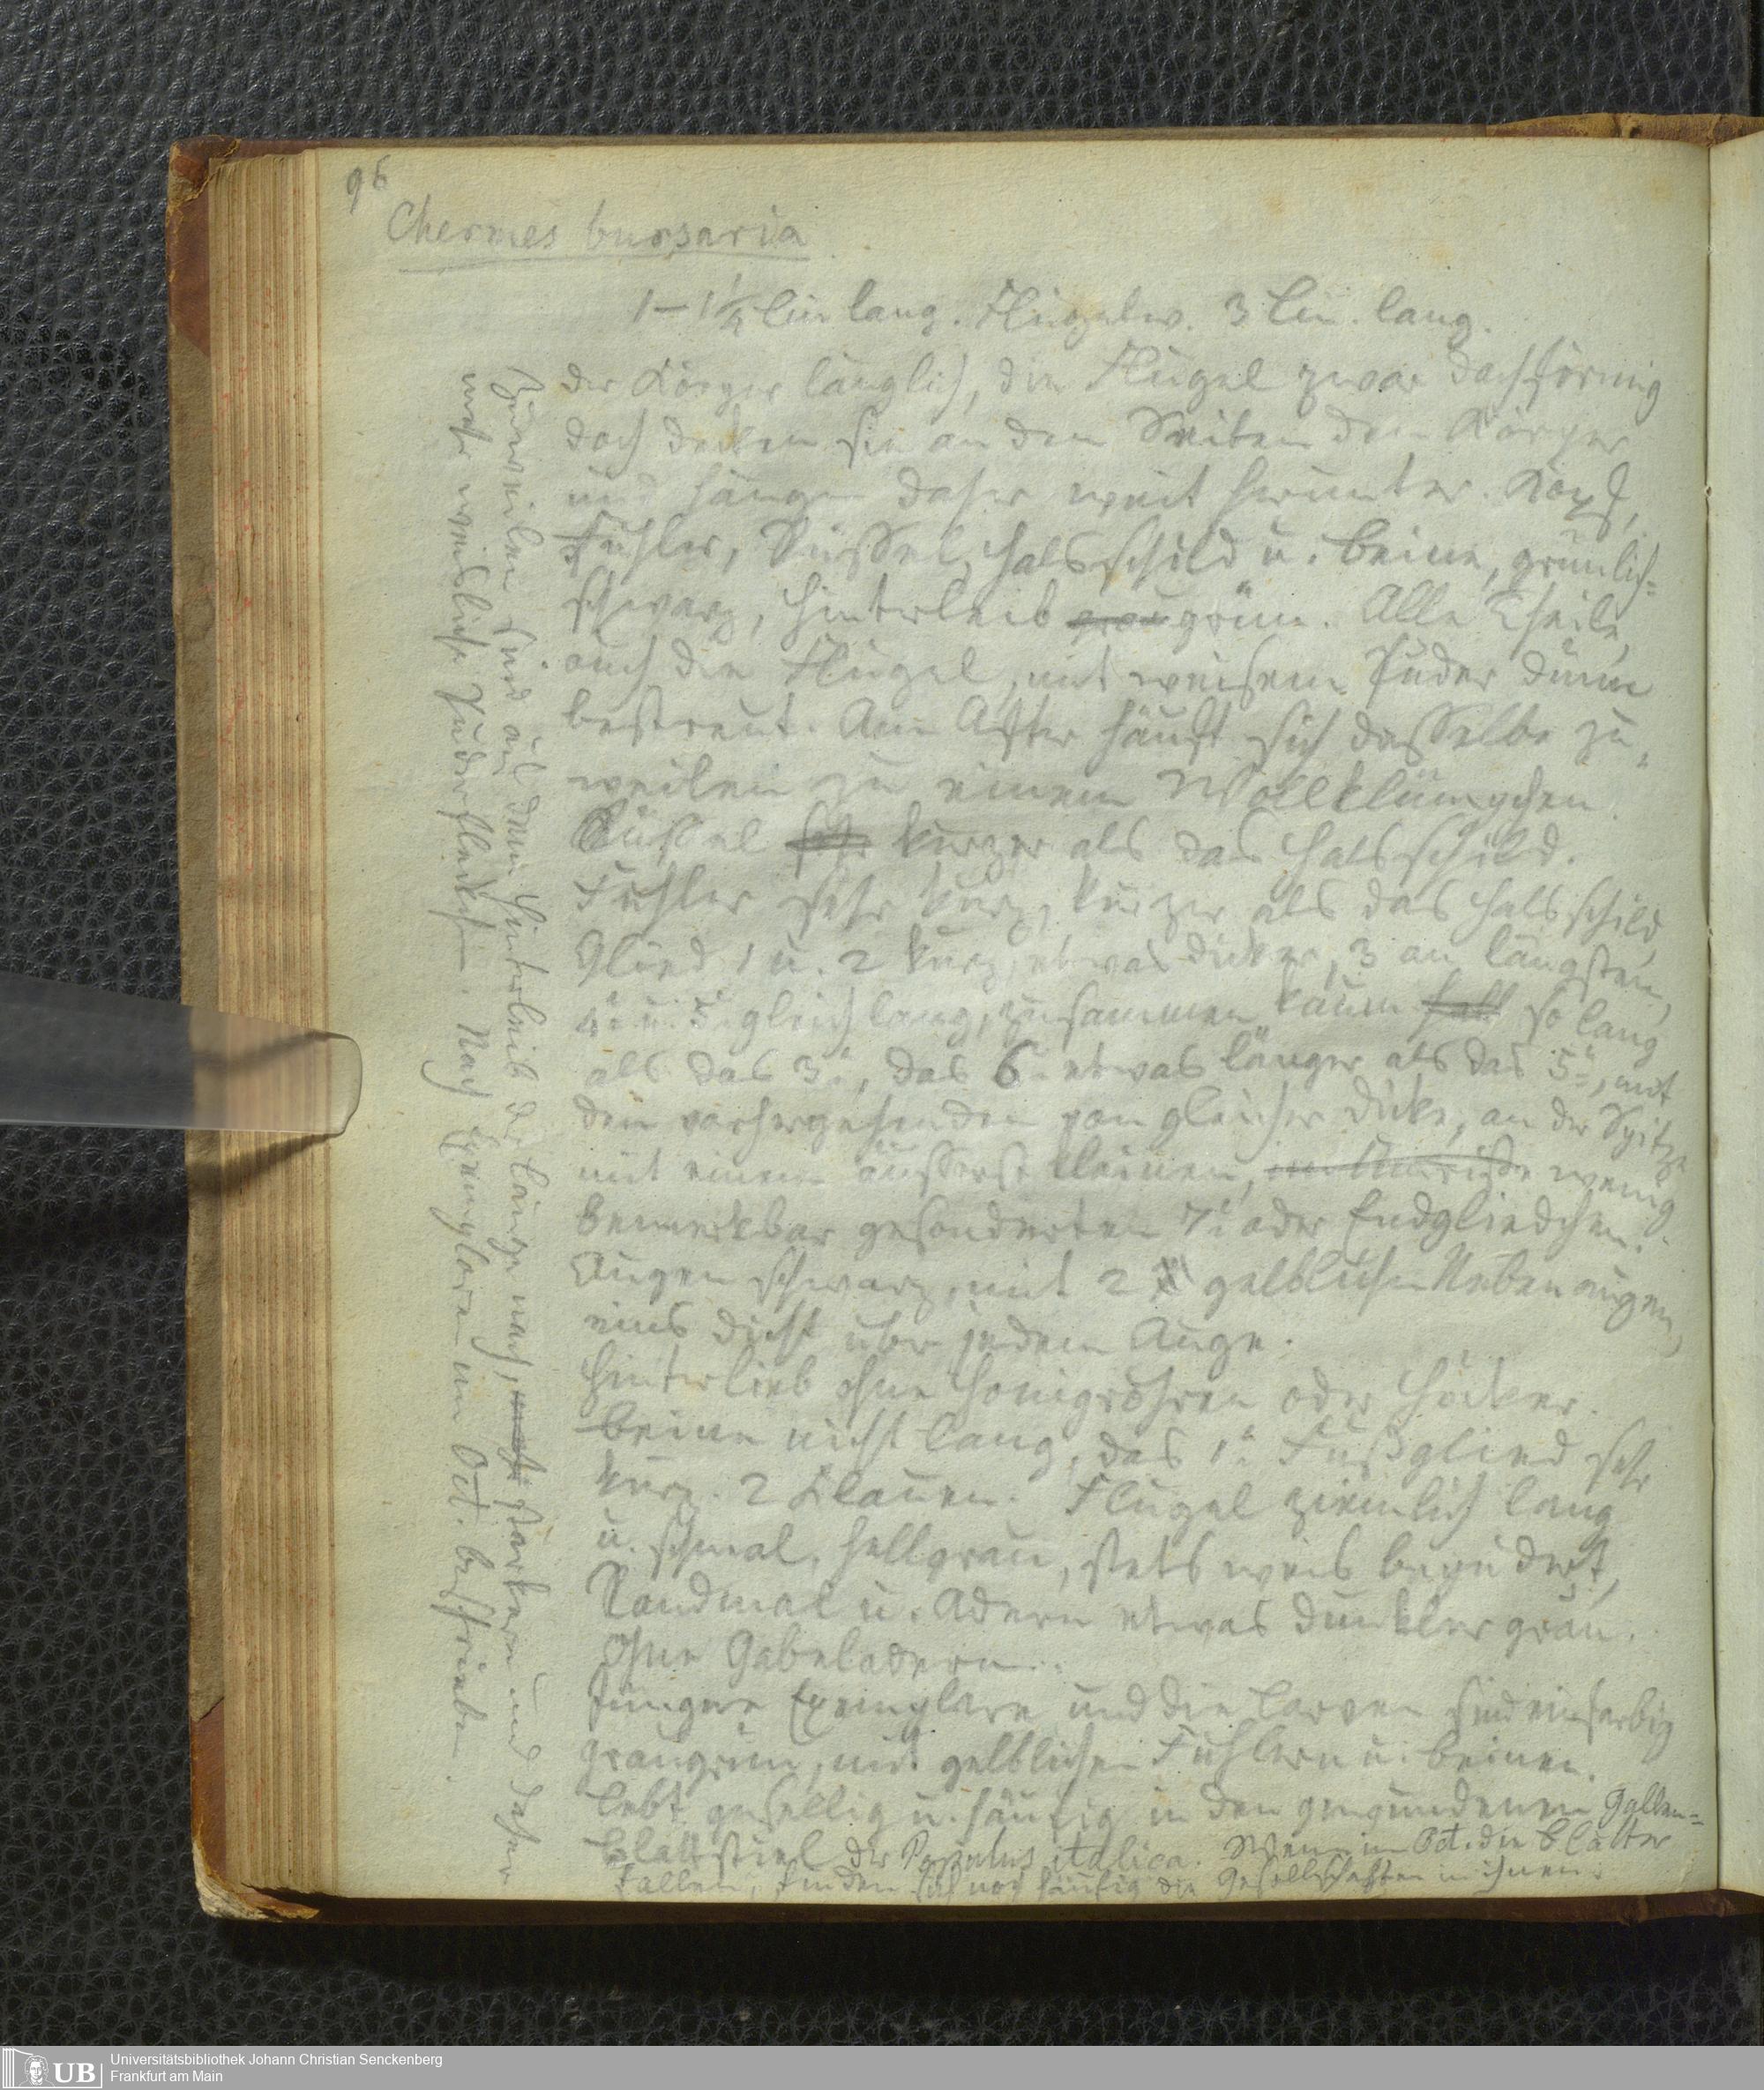 96
Chermes bursaria
1–1 1/4 Lin lang. Flügelw. 3 Lin. lang.
Der Körper länglich, die Flügel zwar dachförmig
doch decken sie an den Seiten den Körper
und hängen daher weit herunter. Kopf,
Fühler, Rüssel, Halsschild u. Beine, grünlich=
schwarz, Hinterleib grau grün. Alle Theile,
auch die Flügel, mit weisem Puder dünn
bestreut. Am After häuft sich dasselbe zu-
weilen zu einem Wollklümpchen
Rüssel sehr kürzer als das Halsschild.
Fühler sehr kurz, kürzer als das Halsschild,
Glied 1 u. 2 kurz, etwas dicker, 3 am längsten,
4 u. 5 gleich lang, zusammen kaum halb so lang
als das 3, das 6 etwas länger als das 5, mit
den vorhergehenden von gleicher Dicke, an der Spitze
mit einem äusserst kleinen, wenig
bemerkbar gesonderten 7 oder Endgliedchen.
Augen schwarz, mit 2 gelblichen Nebenaugen,
eins dicht über jedem Auge.
Hinterlieb ohne Honigröhren oder Höcker.
Beine nicht lang, das 1 Fußglied sehr
kurz. 2 Klauen. Flügel ziemlich lang
u. schmal, hellgrau, stets weis bepudert,
Randmal u. Adern etwas dunkler grau.
Ohne Gabeladern.
Jüngere Exemplare und die Larven sind einfarbig
graugrün, mit gelblichen Fühlern u. Beinen.
Lebt gesellig u. häufig in den gewundenen Gallen=
Blattstiel der Populus italica. Wenn im Oct. die Blätter
fallen, finden sich noch häufig die Gesellschaften in ihnen.
Zuweilen sind auf dem Hinterleib der Länge nach, stärkere und daher
mehr weisliche Puderflecken. Nach Exemplaren im Oct. beschrieben.
Universitätsbibliothek Johann Christian Senckenberg
Frankfurt am Main
UB